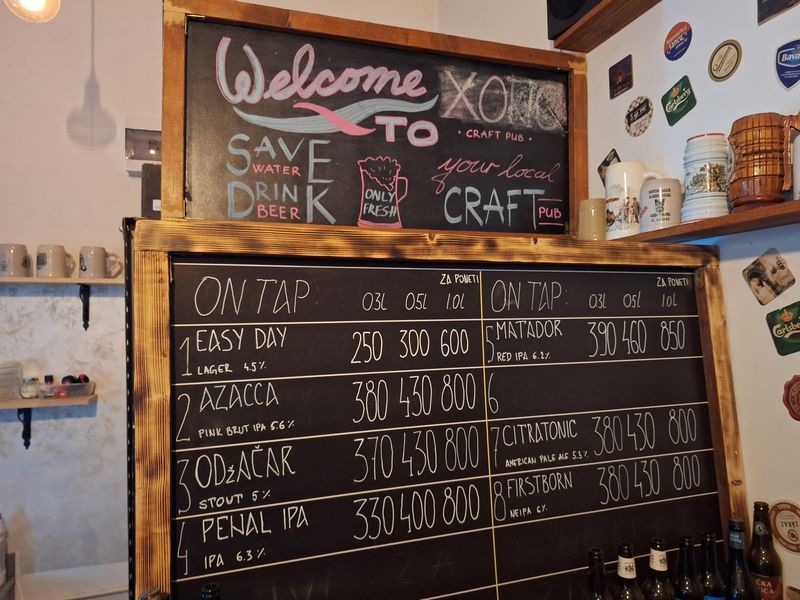 Welcome
TO
XOTIC
CRAFT PUB
SAVE
WATER
DRINK
BEER
ONLY
FRESH
your local
CRAFT PUB
ZA PONETI
ON TAP: 0.3L 0.5L 1.0L
1 EASY DAY 250 300 600
LAGER 4.5%
2 AZACCA 380 430 800
PINK BRUT IPA 5.6%
3 ODŽAČAR 370 430 800
STOUT 5%
4 PENAL IPA 330 400 800
IPA 6.3%
ZA PONETI
ON TAP: 0.3L 0.5L 1.0L
5 MATADOR 390 460 850
RED IPA 6.2%
6
7 CITRATONIC 380 430 800
AMERICAN PALE ALE 5.3%
8 FIRSTBORN 380 430 800
NEIPA 6%
Carlsberg
Bavaria
Carlsberg